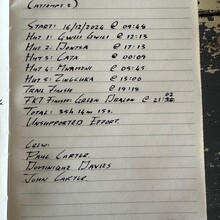 (ATTEMPT 2)
START: 16/12/2024 @ 09:48
HUT 1: GWILI GWILI @ 12:13
HUT 2: @ 17:13
HUT 3: CATA @ 00:09
HUT 4: MNYAMENI @ 05:47
HUT 5: ZINGCUKA @ 13:00
TRAIL FINISH @ 19:19
FKT FINISH: GREEN DRAGON @ 21:02
TOTAL: 35H 14M 15S.
UNSUPPORTED EFFORT.
CREW:
PAUL CARTER.
DOMINIQUE DAVIES
JOHN CARTER.